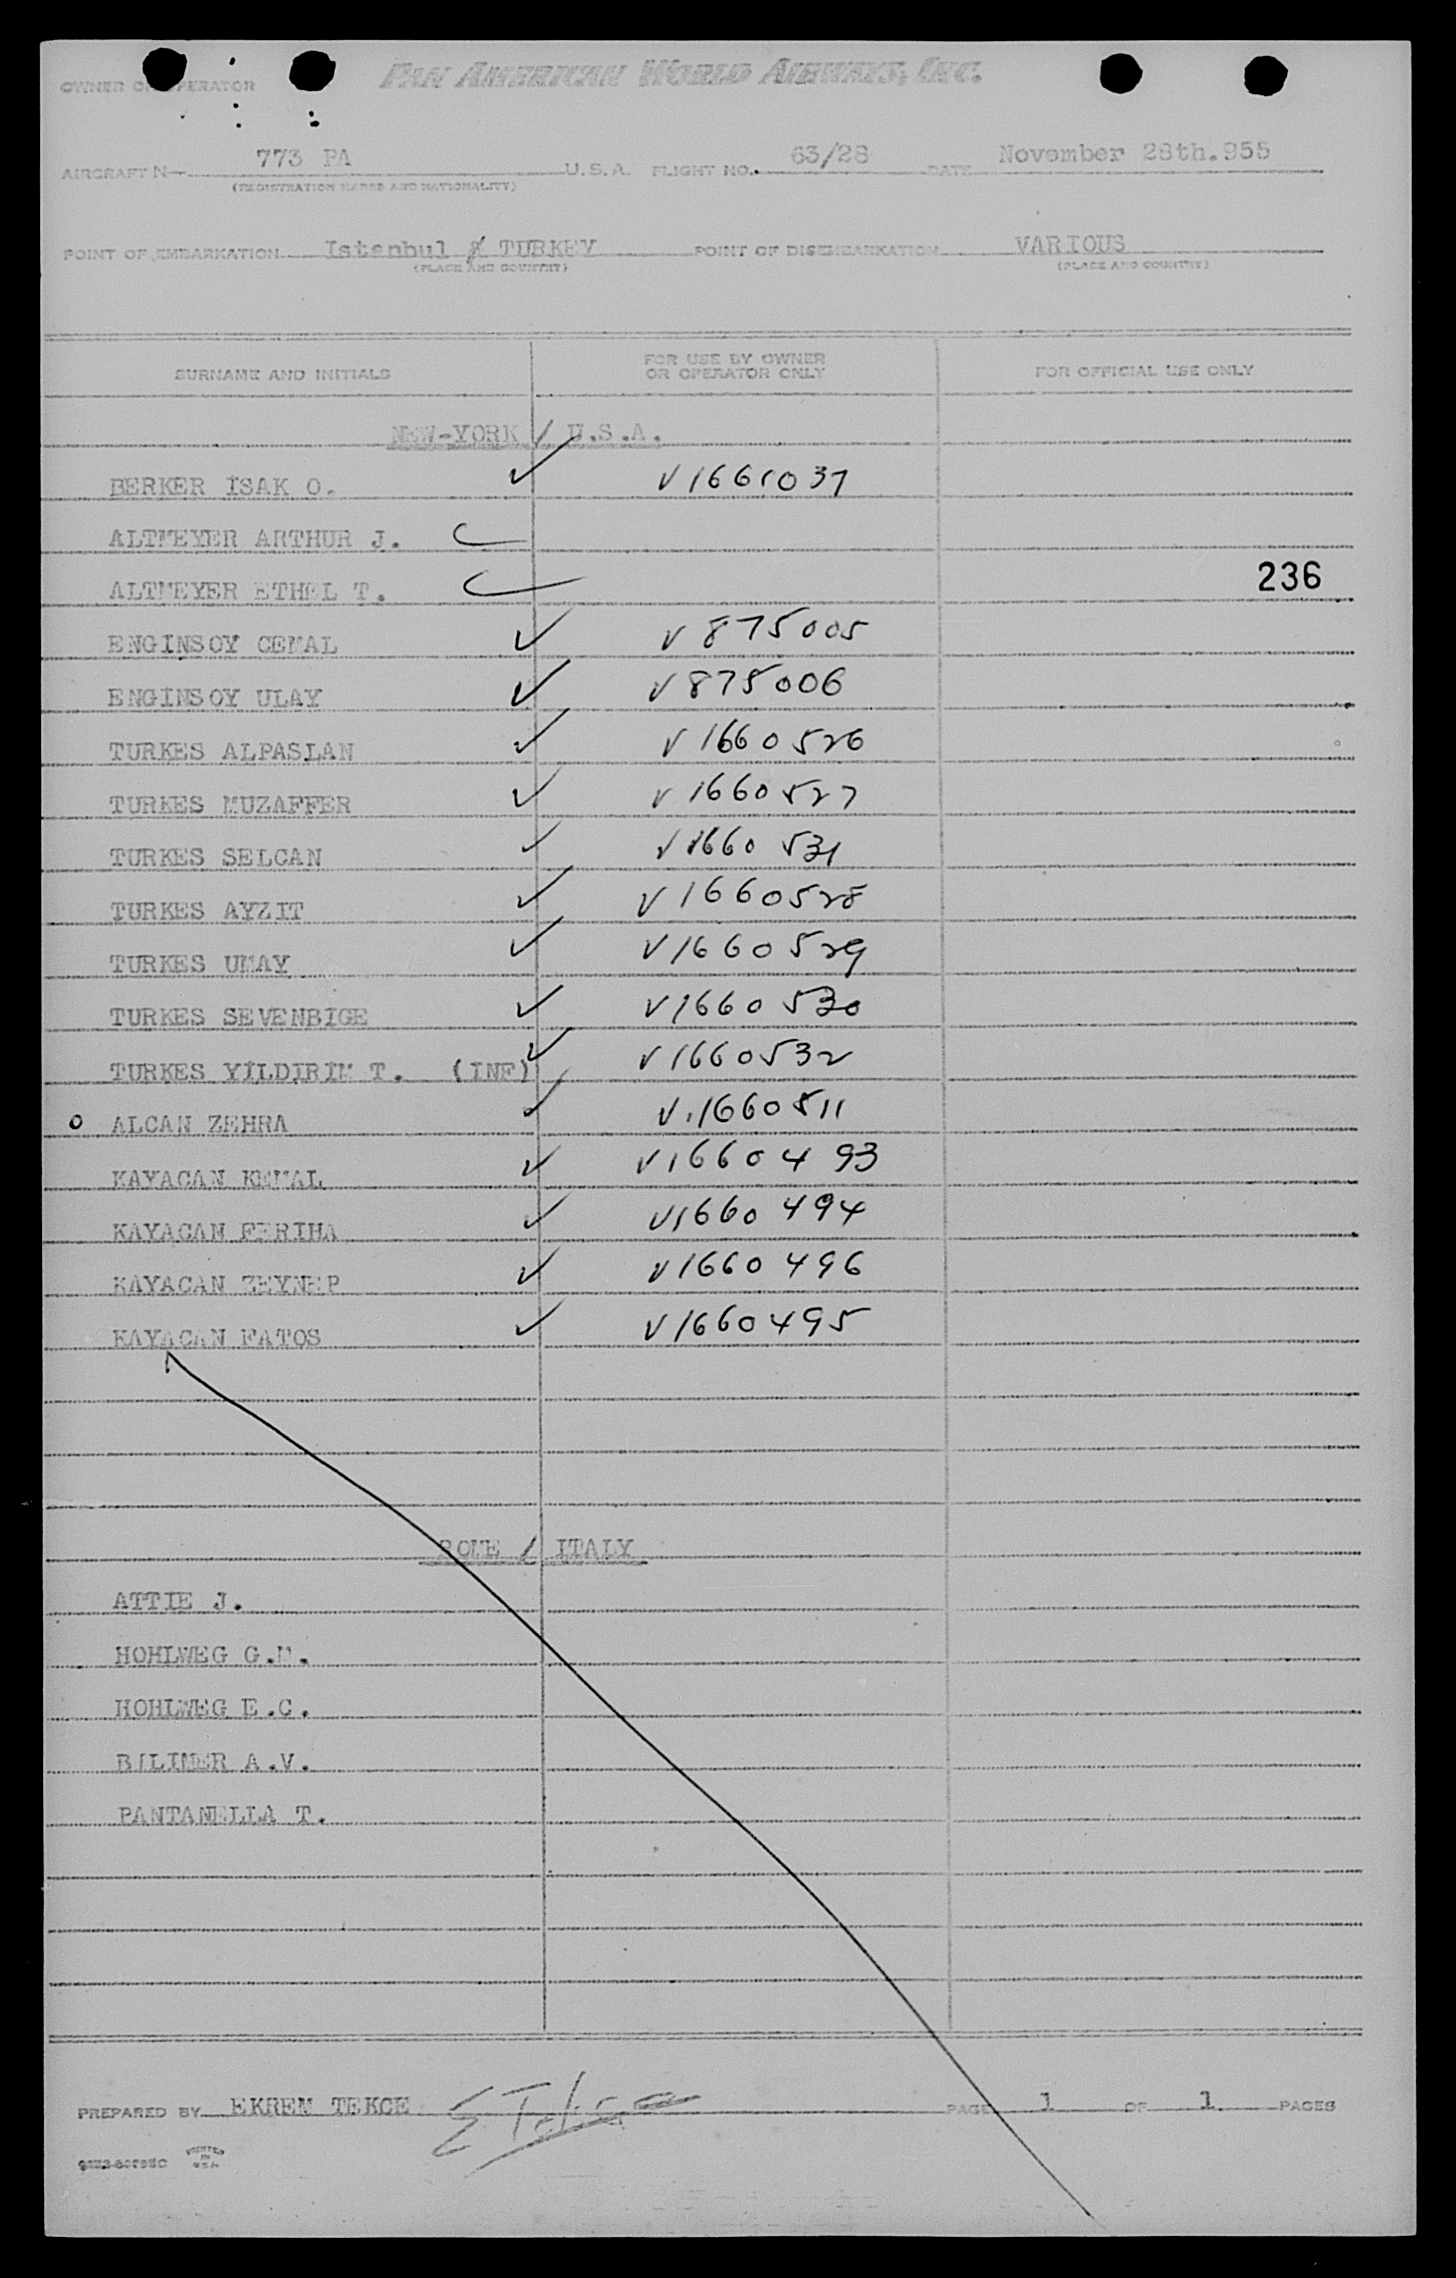 OWNER OR OPERATOR PAN AMERICAN WORLD AIRWAYS, INC.
AIRCRAFT N— 773 PA U.S.A. FLIGHT NO. 63/28 DATE November 28th.955
(REGISTRATION MARKS AND NATIONALITY)
POINT OF EMBARKATION Istanbul / TURKEY POINT OF DISEMBARKATION VARIOUS
(PLACE AND COUNTRY) (PLACE AND COUNTRY)
SURNAME AND INITIALS FOR USE BY OWNER OR OPERATOR ONLY FOR OFFICIAL USE ONLY
NEW-YORK / U.S.A.
BERKER ISAK O. ✓ V1661037
ALTMEYER ARTHUR J.
ALTMEYER ETHEL T. 236
ENGINSOY CEMAL ✓ V875005
ENGINSOY ULAY ✓ V875006
TURKES ALPASLAN ✓ V1660526
TURKES MUZAFFER ✓ V1660527
TURKES SELCAN ✓ V1660531
TURKES AYZIT ✓ V1660528
TURKES UMAY ✓ V1660529
TURKES SEVENBIGE ✓ V1660530
TURKES YILDIRIM T. (INF) ✓ V1660532
o ALCAN ZEHRA ✓ V1660511
KAYACAN KEMAL ✓ V1660493
KAYACAN FERIHA ✓ V1660494
KAYACAN ZEYNEP ✓ V1660496
KAYACAN FATOS ✓ V1660495
ROME / ITALY
ATTIE J.
HOHLWEG G.M.
HOHLWEG E.C.
BILIMER A.V.
PANTANELLA T.
PREPARED BY EKREM TEKCE E Tekce PAGE 1 OF 1 PAGES
PRINTED IN U.S.A.